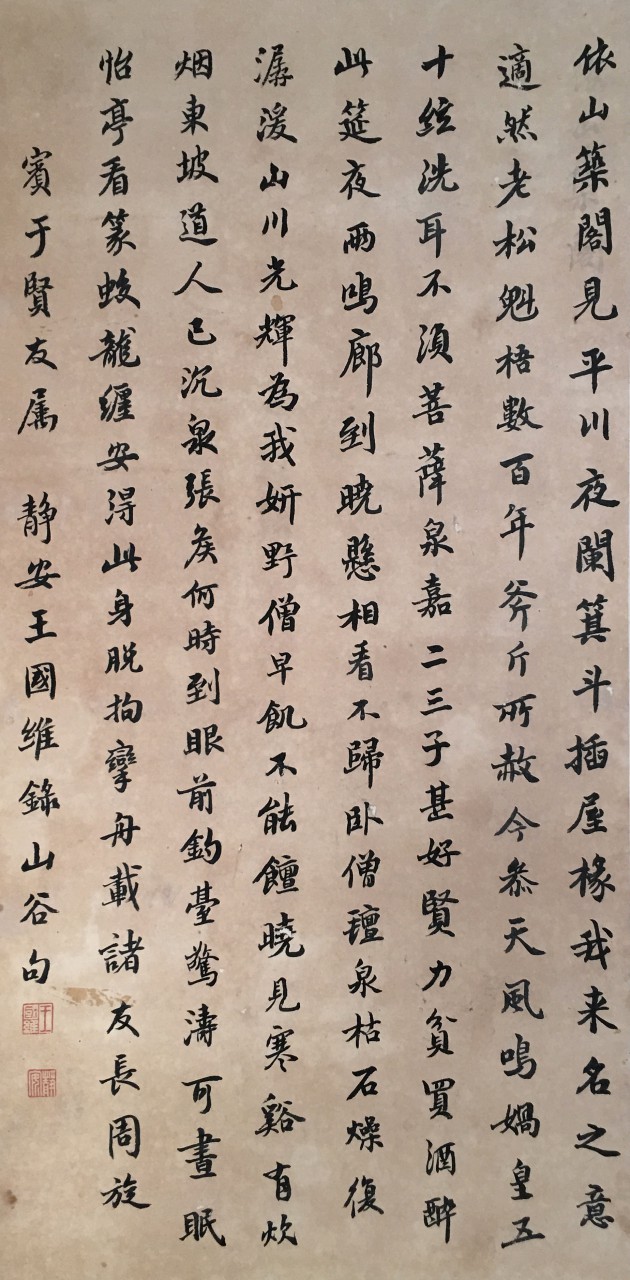 依山築閣見平川夜闌箕斗插屋椽我来名之意
適然老松魁梧數百年斧斤所赦今叅天風鳴媧皇五
十絃洗耳不須菩薩泉嘉二三子甚好賢力貧買酒醉
此筵夜雨鳴廊到曉懸相看不歸卧僧氈泉枯石燥復
潺湲山川光輝為我妍野僧早飢不能饘曉見寒谿有炊
烟東坡道人已沉泉張矦何時到眼前釣臺驚濤可晝眠
怡亭看篆蛟龍纏安得此身脱拘攣舟載諸友長周旋
賓于賢友属 静安王國維錄山谷句